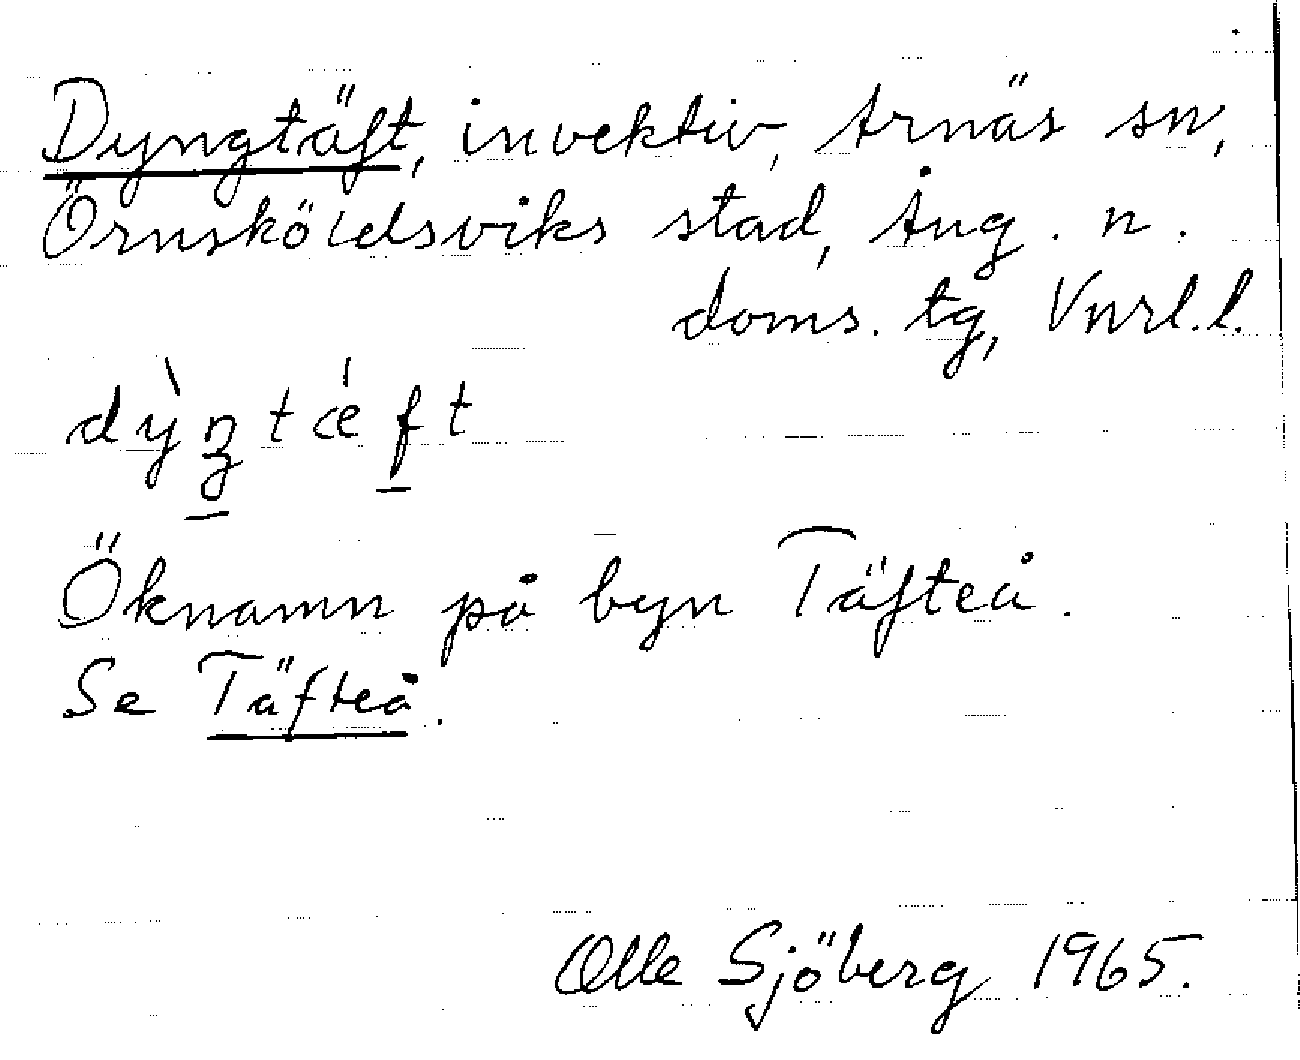 Dyngtäft, invektiv, Arnäs sn,
Örnsköldsviks stad, Ång. n.
doms. tg, Vnrl.l.
dỳŋtǽft
Öknamn på byn Täfteå.
Se Täfteå.
Olle Sjöberg 1965.